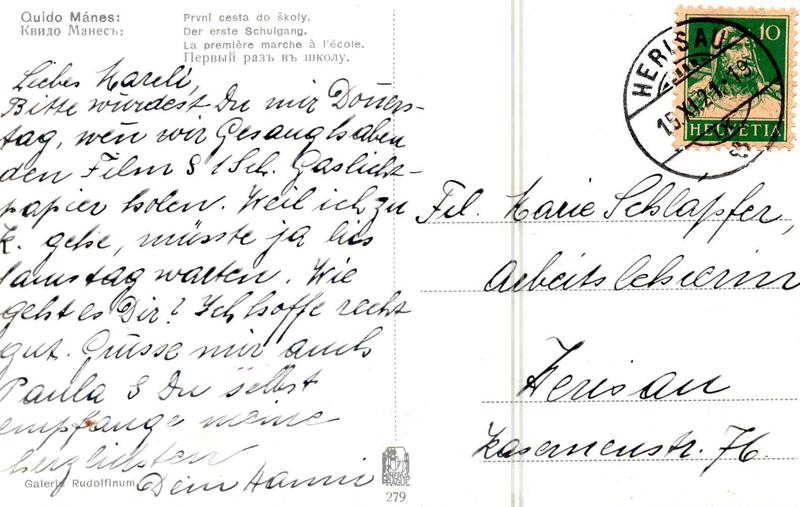 Quido Mánes:
Квидо Манесъ:
První cesta do školy.
Der erste Schulgang.
La première marche à l'école.
Первый разъ въ школу.
Liebes Mareli,
Bitte würdest Du mir Doners-
tag, wen wir Gesang haben
den Film & 1 Sch. Gaslicht-
papier holen. Weil ich zu
K. gehe, müsste ja bis
Samstag warten. Wie
geht es Dir? Ich hoffe recht
gut. Grüsse mir auch
Paula & Du selbst
empfange meine
herzlichsten
Dein Hanni
Galerie Rudolfinum
MINERVA
PRAGUE
279
HERISAU
15.XI.21.-19
10
HELVETIA
Frl. Marie Schläpfer,
Arbeitslehrerin
Herisau
Kasernenstr. 76.